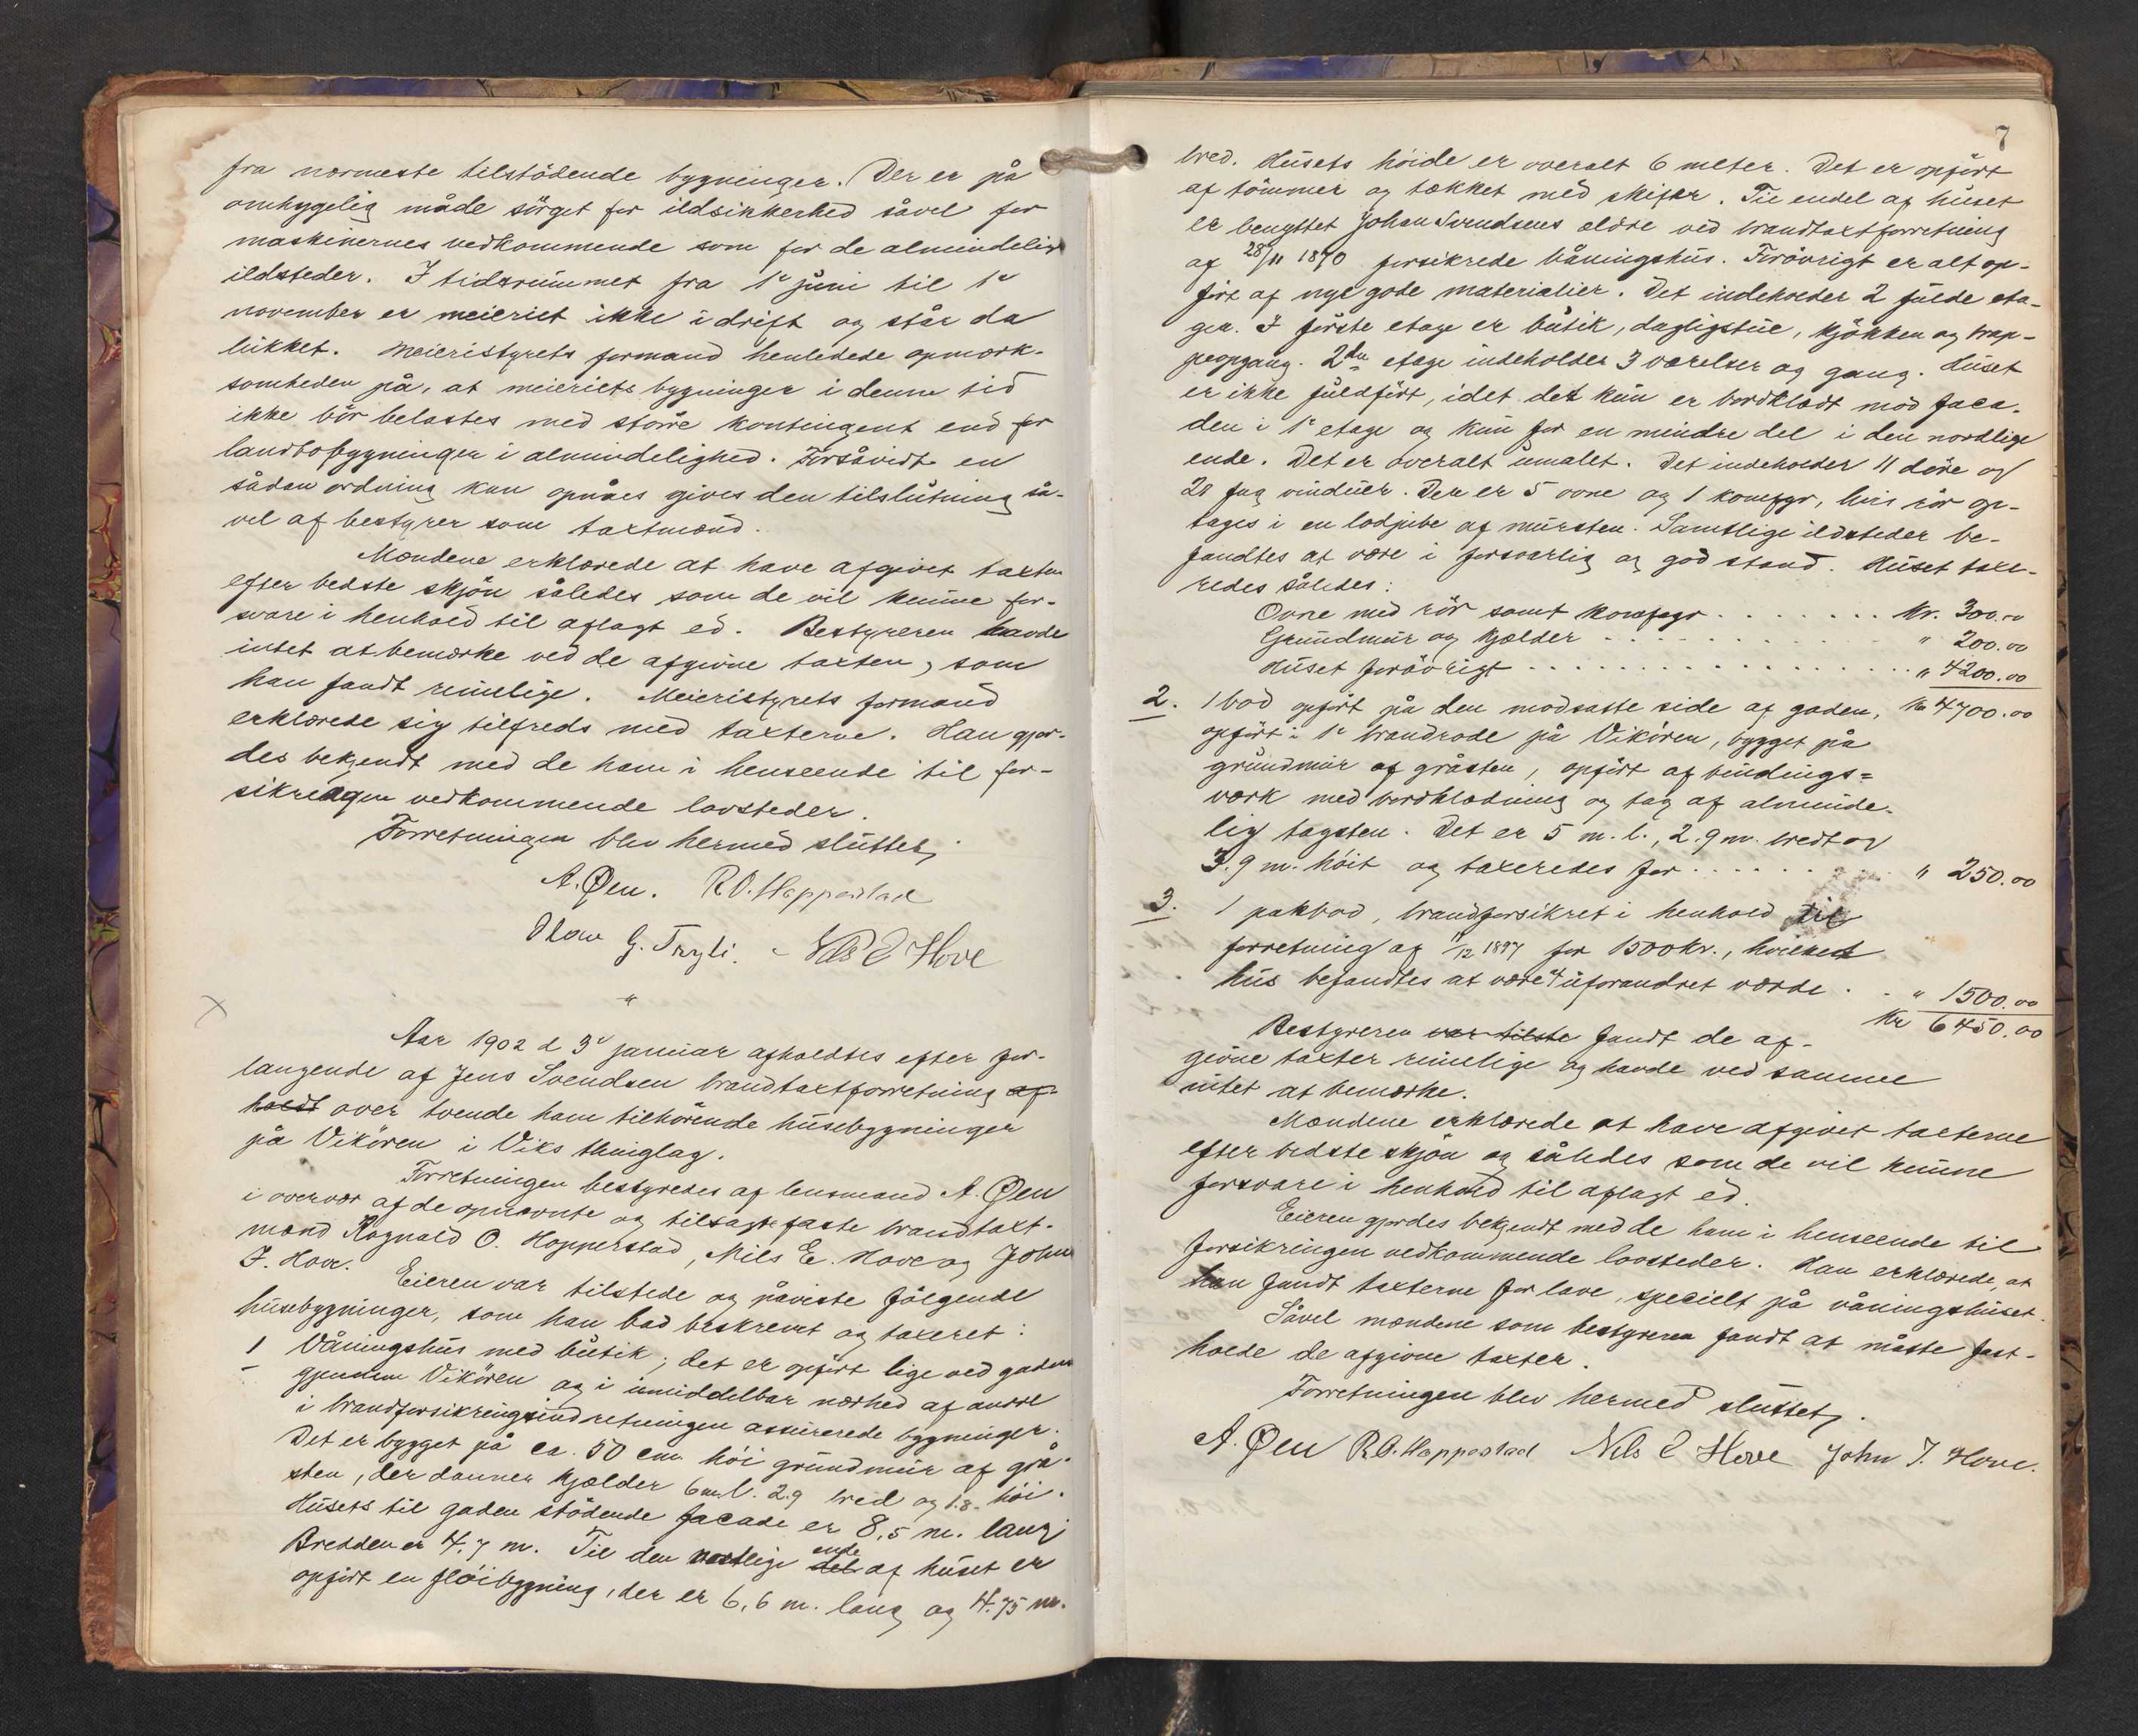 fra nærmeste tilstödende bygninger. Der er på
omhyggelig måde sörget for ildsikkerhed såvel for
maskinernes vedkommende som for de almindelige
ildsteder. I tidsrummet fra 1ste juni til 1ste
november er meieriet ikke i drift og står da
lukket. Meieristyrets formand henledede opmærk-
somheden på, at meieriets bygninger i denne tid
ikke bör belastes med större kontingent end for
landbobygninger i almindelighed. Forsåvidt en
sådan ordning kan opnåes gives den tilslutning så-
vel af bestyrer som taxtmænd.
Mændene erklærede at have afgivet taxten
efter bedste skjön således som de vil kunne for-
svare i henhold til aflagt ed. Bestyreren havde
intet at bemærke ved de afgivne taxter, som
han fandt rimelige. Meieristyrets formand
erklærede sig tilfreds med taxterne. Han gjor-
des bekjendt med de ham i henseende til for-
sikringen vedkommende lovsteder.
Forretningen blev hermed sluttet,
A. Øen. R.O. Hopperstad
Olav G. Tryti. Nils E Hove
"
Aar 1902 d 3die januar afholdtes efter for-
langende af Jens Svendsen brandtaxtforretning af-
holdt over tvende ham tilhörende husebygninger
på Vikören i Viks thinglag.
Forretningen bestyredes af lensmand A. Øen
i overvær af de opnævnte og tilsagte faste brandtaxt-
mænd Ragnald O. Hopperstad, Nils E. Hove og John
J. Hove. Eieren var tilstede og påviste fölgende
husebygninger, som han bad beskrevet og taxeret:
1 Våningshus med butik; det er opfört lige ved gaden
gjennem Vikören og i umiddelbar nærhed af andre
i brandforsikringsindretningen assurerede bygninger.
Det er bygget på ca. 50 cm. höi grundmur af grå-
sten, der danner kjælder 6 m. l. 2.9 bred og 1.8 höi.
Husets til gaden stödende facade er 8,5 m. lang
Bredden er 4.7 m. Til den vestlige del ende af huset er
opfört en flöibygning, der er 6,6 m. lang og 4.75 m.
7
bred. Husets höide er overalt 6 meter. Det er opfört
af tömmer og tækket med skifer. Til endel af huset
er benyttet Johan Svendsens ældre ved brandtaxtforretning
af 28/11 1890 forsikrede våningshus. Forövrigt er alt op-
fört af nye gode materialier. Det indeholder 2 fulde eta-
ger. I förste etage er butik, dagligstue, kjökken og trap-
peopgang. 2den etage indeholder 3 værelser og gang. Huset
er ikke fuldfört, idet det kun er bordklædt mod faca-
den i 1ste etage og kun for en mindre del i den nordlige
ende. Det er overalt umalet. Det indeholder 11 döre og
28 fag vinduer. Der er 5 ovne og 1 komfyr, hvis rör op-
tages i en lodpibe af mursten. Samtlige ildsteder be-
fandtes at være i forsvarlig og god stand. Huset taxe-
redes således:
Ovne med rör samt komfyr . . . . . . . . Kr. 300.00
Grundmur og kjælder . . . . . . . . . " 200.00
Huset forövrigt . . . . . . . . . . . . . . " 4200.00
2. 1 bod opfört på den modsatte side af gaden, Kr 4700.00
opfört i 1ste brandrode på Vikören, bygget på
grundmur af gråsten, opfört af bindings=
værk med bordklædning og tag af alminde-
lig tagsten. Det er 5 m. l., 2.9 m. bredt og
3.9 m. höit og taxeredes for . . . . . . " 250.00
3. 1 pakbod, brandforsikret i henhold til
forretning af /12 1897 for 1500 kr., hvilket
hus befandtes at være af uforandret værde . . " 1500.00
Kr 6450.00
Bestyreren var tilste fandt de af-
givne taxter rimelige og havde ved samme
intet at bemærke.
Mændene erklærede at have afgivet taxterne
efter bedste skjön og således som de vil kunne
forsvare i henhold til aflagt ed.
Eieren gjordes bekjendt med de ham i henseende til
forsikringen vedkommende lovsteder. Han erklærede, at
han fandt taxterne for lave, specielt på våningshuset.
Såvel mændene som bestyreren fandt at måtte fast-
holde de afgivne taxter.
Forretningen blev hermed sluttet,
A. Øen R.O. Hopperstad Nils E Hove John J. Hove.